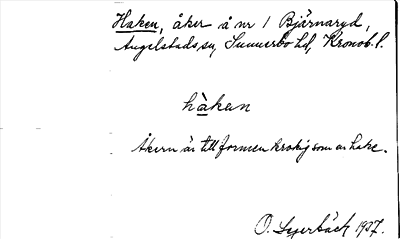 Haken, åker å nr 1 Bjärnaryd,
Angelstads sn, Sunnerbo hd, Kronob. l.
hàkan
Åkern är till formen krokig som en hake.
O. Segerbäck 1927.